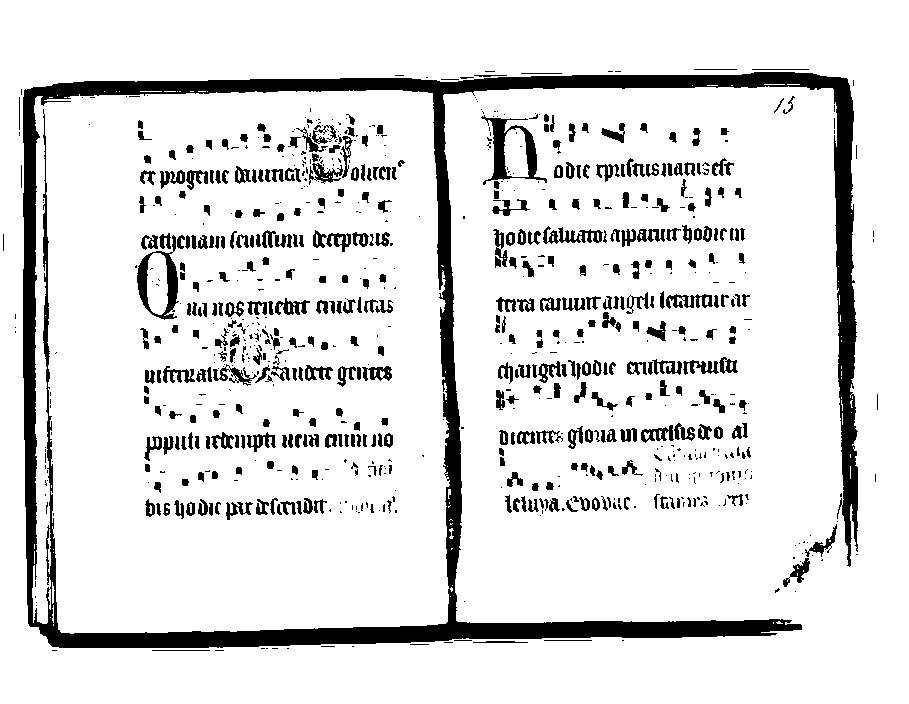 ex progenie dauitica Soluens
cathenam seuissimi deceptoris.
Qua nos tenebat crudelitas
infernalis Gaudete gentes
populi redempti uera enim no
bis hodie pax descendit.
15
Hodie xpristus natus est
hodie saluator apparuit hodie in
terra canunt angeli letantur ar
changeli hodie exultant iusti
dicentes gloria in excelsis deo al
leluya. Euouae.